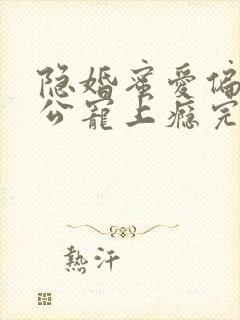 隐婚蜜爱偏
公寵上瘾完
熱汗